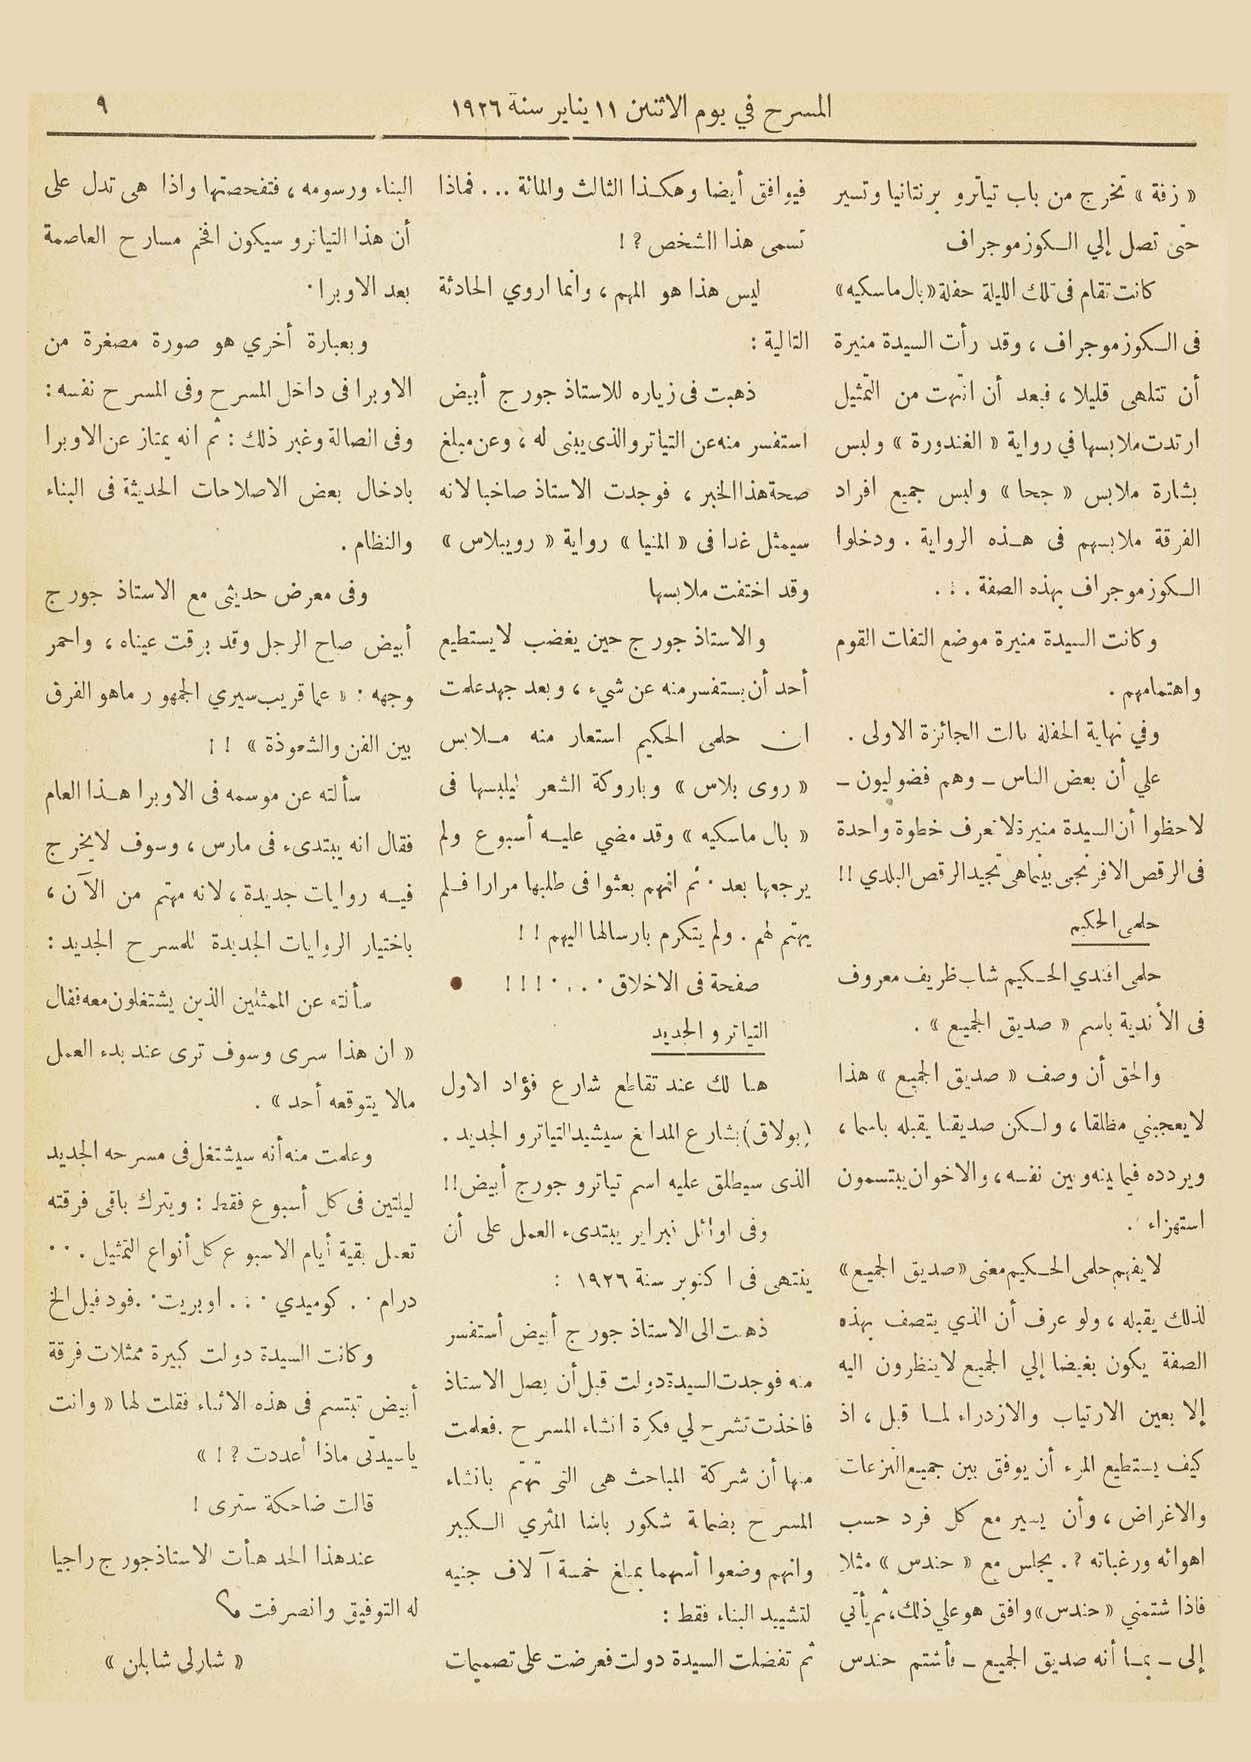 المسرح في يوم الاثنين ١١ يناير سنة ١٩٢٦
٩
« زفة » تخرج من باب تياترو برنتانيا وتسير
حتى تصل إلي الكوزموجراف
كانت تقام فى تلك الليلة حفلة «بال ماسكيه»
فى الكوزموجراف ، وقد رأت السيدة منيرة
أن تتلهى قليلا ، فبعد أن انتهت من التمثيل
ارتدت ملابسها في رواية « الغندورة » ولبس
بشارة ملابس « جحا » ولبس جميع افراد
الفرقة ملابسهم فى هذه الرواية . ودخلوا
الكوزموجراف بهذه الصفة . . .
وكانت السيدة منيرة موضع التفات القوم
واهتمامهم .
وفي نهاية الحفلة نالت الجائزة الاولى .
علي أن بعض الناس ــ وهم فضوليون ــ
لاحظوا أن السيدة منيرة لا تعرف خطوة واحدة
فى الرقص الافرنجى بينما هى تجيد الرقص البلدي !!
حلمى الحكيم
حلمى افندي الحكيم شاب ظريف معروف
فى الأندية باسم « صديق الجميع » .
والحق أن وصف « صديق الجميع » هذا
لايعجبني مطلقا ، ولكن صديقنا يقبله باسما ،
ويردده فيما بينه وبين نفسه ، والاخوان يبتسمون
استهزاء .
لا يفهم حلمى الحكيم معنى «صديق الجميع»
لذلك يقبله ، ولو عرف أن الذي يتصف بهذه
الصفة يكون بغيضا إلي الجميع لاينظرون اليه
إلا بعين الارتياب والازدراء لما قبل ، اذ
كيف يستطيع المرء أن يوفق بين جميع النزعات
والاغراض ، وأن يسير مع كل فرد حسب
اهوائه ورغباته ? . يجلس مع « حندس » مثلا
فاذا شتمني « حندس» وافق هو علي ذلك، ثم يأتي
إلى ــ بما أنه صديق الجميع ــ فأشتم حندس
فيوافق أيضا وهكذا الثالث والمائة ... فماذا
تسمى هذا الشخص ? !
ليس هذا هو المهم ، وانما اروي الحادثة
التالية :
ذهبت فى زياره للاستاذ جورج أبيض
استفسر منه عن التياترو الذى يبنى له ، وعن مبلغ
صحة هذا الخبر ، فوجدت الاستاذ صاخبا لانه
سيمثل غدا فى « المنيا » رواية « رويبلاس »
وقد اختفت ملابسها
والاستاذ جورج حين يغضب لايستطيع
أحد أن يستفسر منه عن شيء ، وبعد جهد علمت
ان حلمى الحكيم استعار منه ملابس
« روى بلاس » وباروكة الشعر ليلبسها فى
« بال ماسكيه » وقد مضي عليه أسبوع ولم
يرجعها بعد . ثم انهم بعثوا فى طلبها مرارا فلم
يهتم لهم . ولم يتكرم بارسالها اليهم ! !
صفحة فى الاخلاق . . . . ! ! !
التياترو الجديد
هنا لك عند تقاطع شارع فؤاد الاول
(بولاق) بشارع المدابغ سيشيد التياترو الجديد .
الذى سيطلق عليه اسم تياترو جورج أبيض !!
وفى اوائل نبراير يبتدىء العمل على أن
ينتهى فى اكتوبر سنة ١٩٢٦ :
ذهبت الى الاستاذ جورج أبيض أستفسر
منه فوجدت السيدة دولت قبل أن يصل الاستاذ
فاخذت تشرح لي فكرة انشاء المسرح . فعلمت
منها أن شركة المباحث هى التى تهتم بانشاء
المسرح بضمانة شكور باشا المثري الكبير
وانهم وضعوا أسهما بمبلغ خمسة آلاف جنيه
لتشييد البناء فقط :
ثم تفضلت السيدة دولت فعرضت على تصميمات
البناء ورسومه ، فتفحصتها واذا هى تدل على
أن هذا التياترو سيكون افخم مسارح العاصمة
بعد الاوبرا .
وبعبارة أخري هو صورة مصغرة من
الاوبرا فى داخل المسرح وفى المسرح نفسه :
وفى الصالة وغير ذلك : ثم انه يمتاز عن الاوبرا
بادخال بعض الاصلاحات الحديثة فى البناء
والنظام .
وفى معرض حديثى مع الاستاذ جورج
أبيض صاح الرجل وقد برقت عيناه ، واحمر
وجهه : « عما قريب سيري الجمهور ماهو الفرق
بين الفن والشعوذة » ! !
سألته عن موسمه فى الاوبرا هذا العام
فقال انه يبتدىء فى مارس ، وسوف لايخرج
فيه روايات جديدة ، لانه مهتم من الآن ،
باختيار الروايات الجديدة للمسرح الجديد :
سألته عن الممثلين الذين يشتغلون معه فقال
« ان هذا سرى وسوف ترى عند بدء العمل
مالا يتوقعه أحد » .
وعلمت منه أنه سيشتغل فى مسرحه الجديد
ليلتين فى كل أسبوع فقط : ويترك باقى فرقته
تعمل بقية أيام الاسبوع كل أنواع التمثيل . . .
درام . . كوميدي . . . اوبريت . . فودفيل الخ
وكانت السيدة دولت كبيرة ممثلات فرقة
أبيض تبتسم فى هذه الاثناء فقلت لها « وانت
ياسيدتى ماذا أعددت ? ! »
قالت ضاحكة سترى !
عند هذا الحد هنأت الاستاذ جورج راجيا
له التوفيق وانصرفت
« شارلى شابلن »